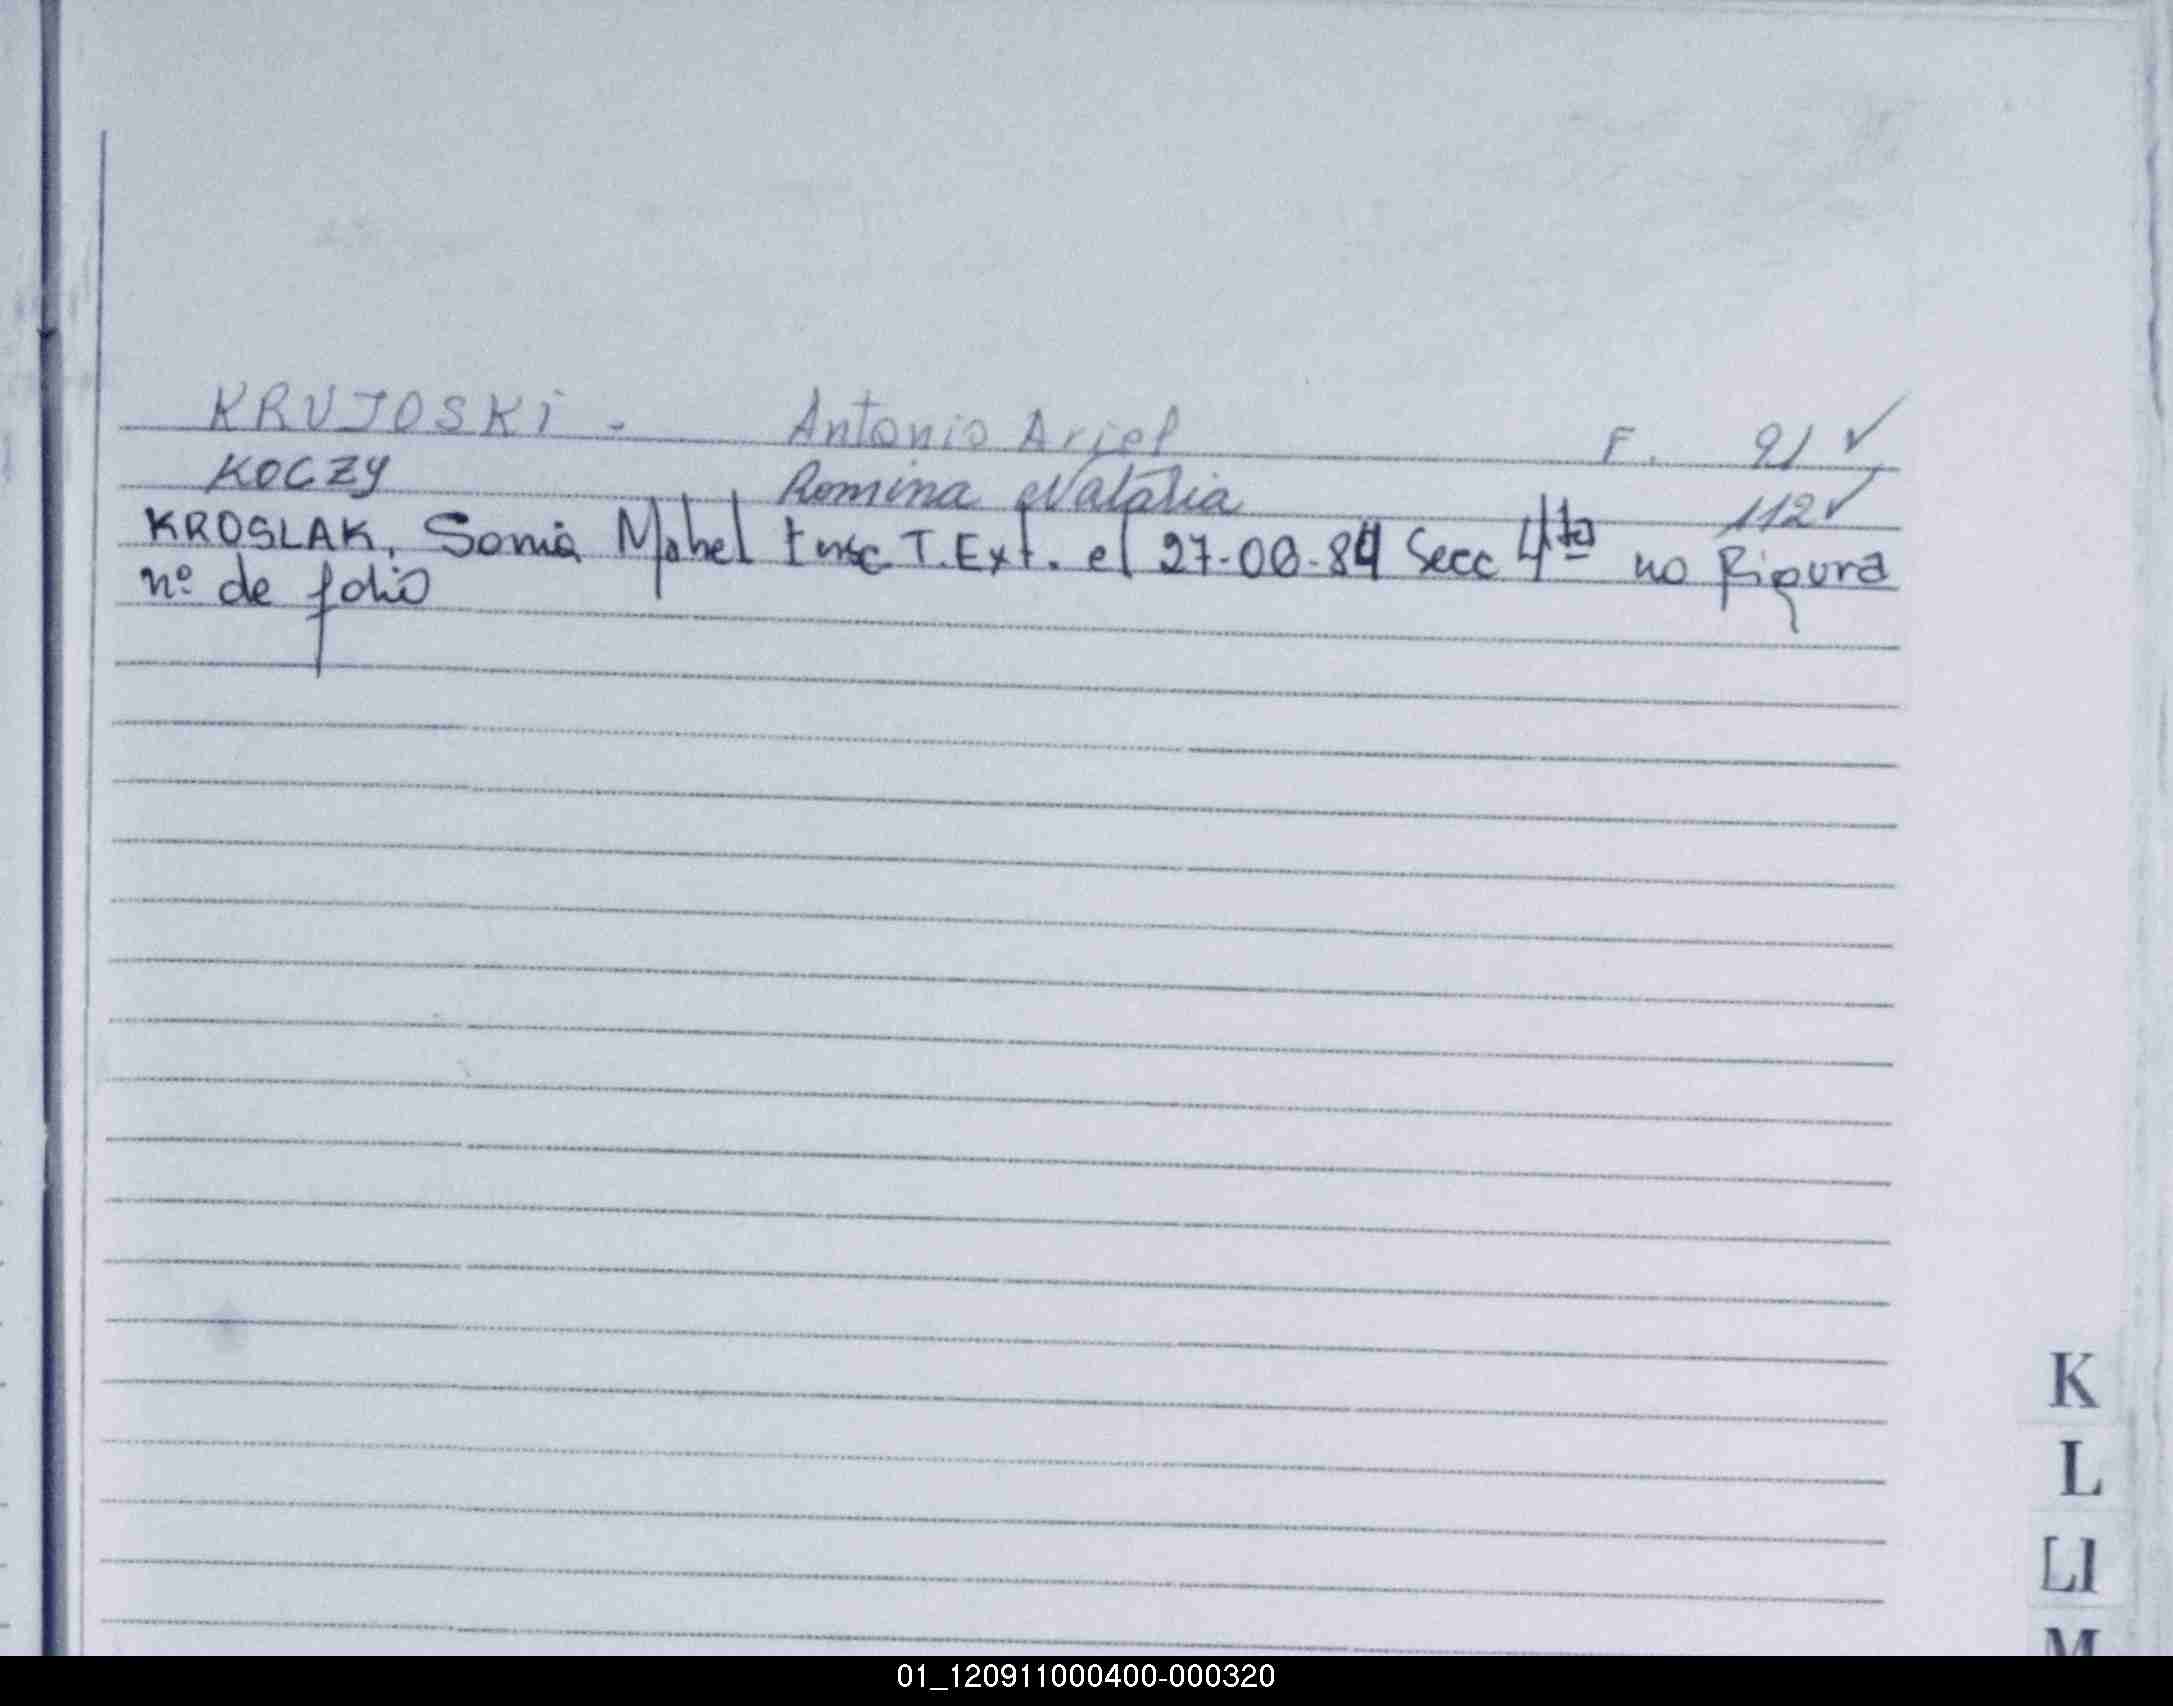 KRUJOSKI - Antonio Ariel F. 91 ✓
KOCZY Romina Natalia 112 ✓
KROSLAK, Sonia Mabel Insc. T.Ext. el 27-08-84 Secc 4ta no Figura
nº de folio
K
L
Ll
M
01_120911000400-000320